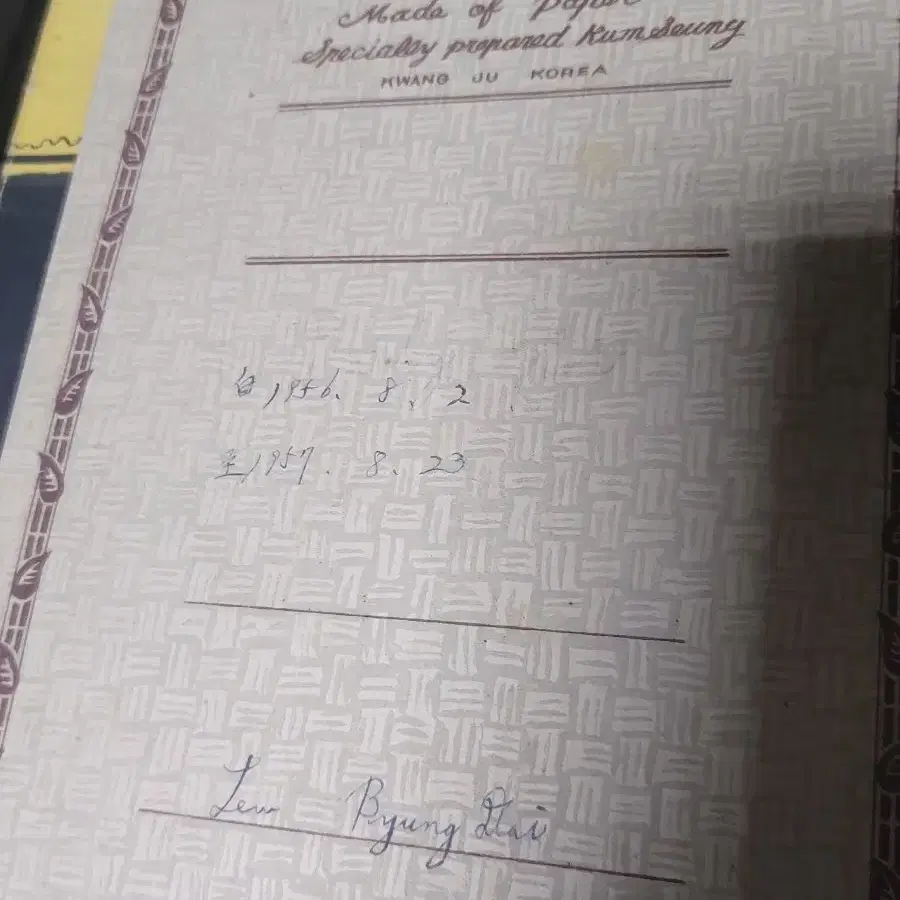 Made of paper
Specially prepared Kumseung
KWANG JU KOREA
自 1956. 8. 2.
至 1957. 8. 23
Lew Byung Dai